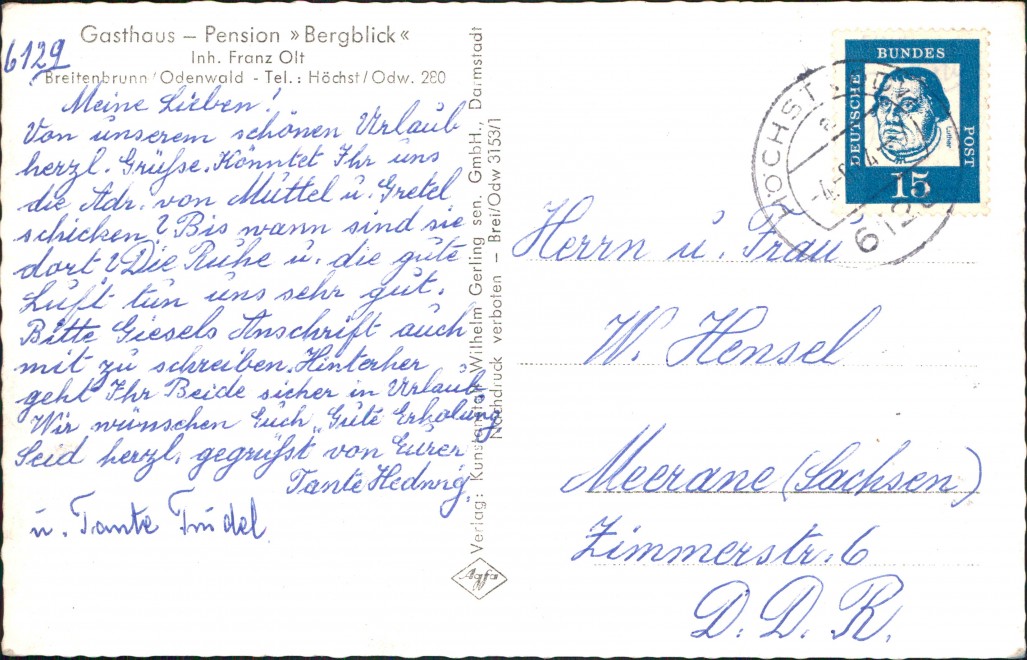 Gasthaus – Pension »Bergblick«
Inh. Franz Olt
Breitenbrunn/Odenwald - Tel.: Höchst/Odw. 280
6129
Meine Lieben!
Von unserem schönen Urlaub
herzl. Grüße. Könntet Ihr uns
die Adr. von Muttel u. Gretel
schicken? Bis wann sind sie
dort? Die Ruhe u. die gute
Luft tun uns sehr gut.
Bitte Giesels Anschrift auch
mit zu schreiben. Hinterher
geht Ihr Beide sicher in Urlaub.
Wir wünschen Euch „Gute Erholung
Seid herzl. gegrüßt von Eurer
Tante Hedwig,
u. Tante Trudel
Verlag: Kunstanstalt Wilhelm Gerling sen. GmbH., Darmstadt
Nachdruck verboten – Brei/Odw 3153/1
Agfa
DEUTSCHE
BUNDES
POST
Luther
15
HÖCHST
6129
Herrn u. Frau
W. Hensel
Meerane (Sachsen)
Zimmerstr. 6
D. D. R.